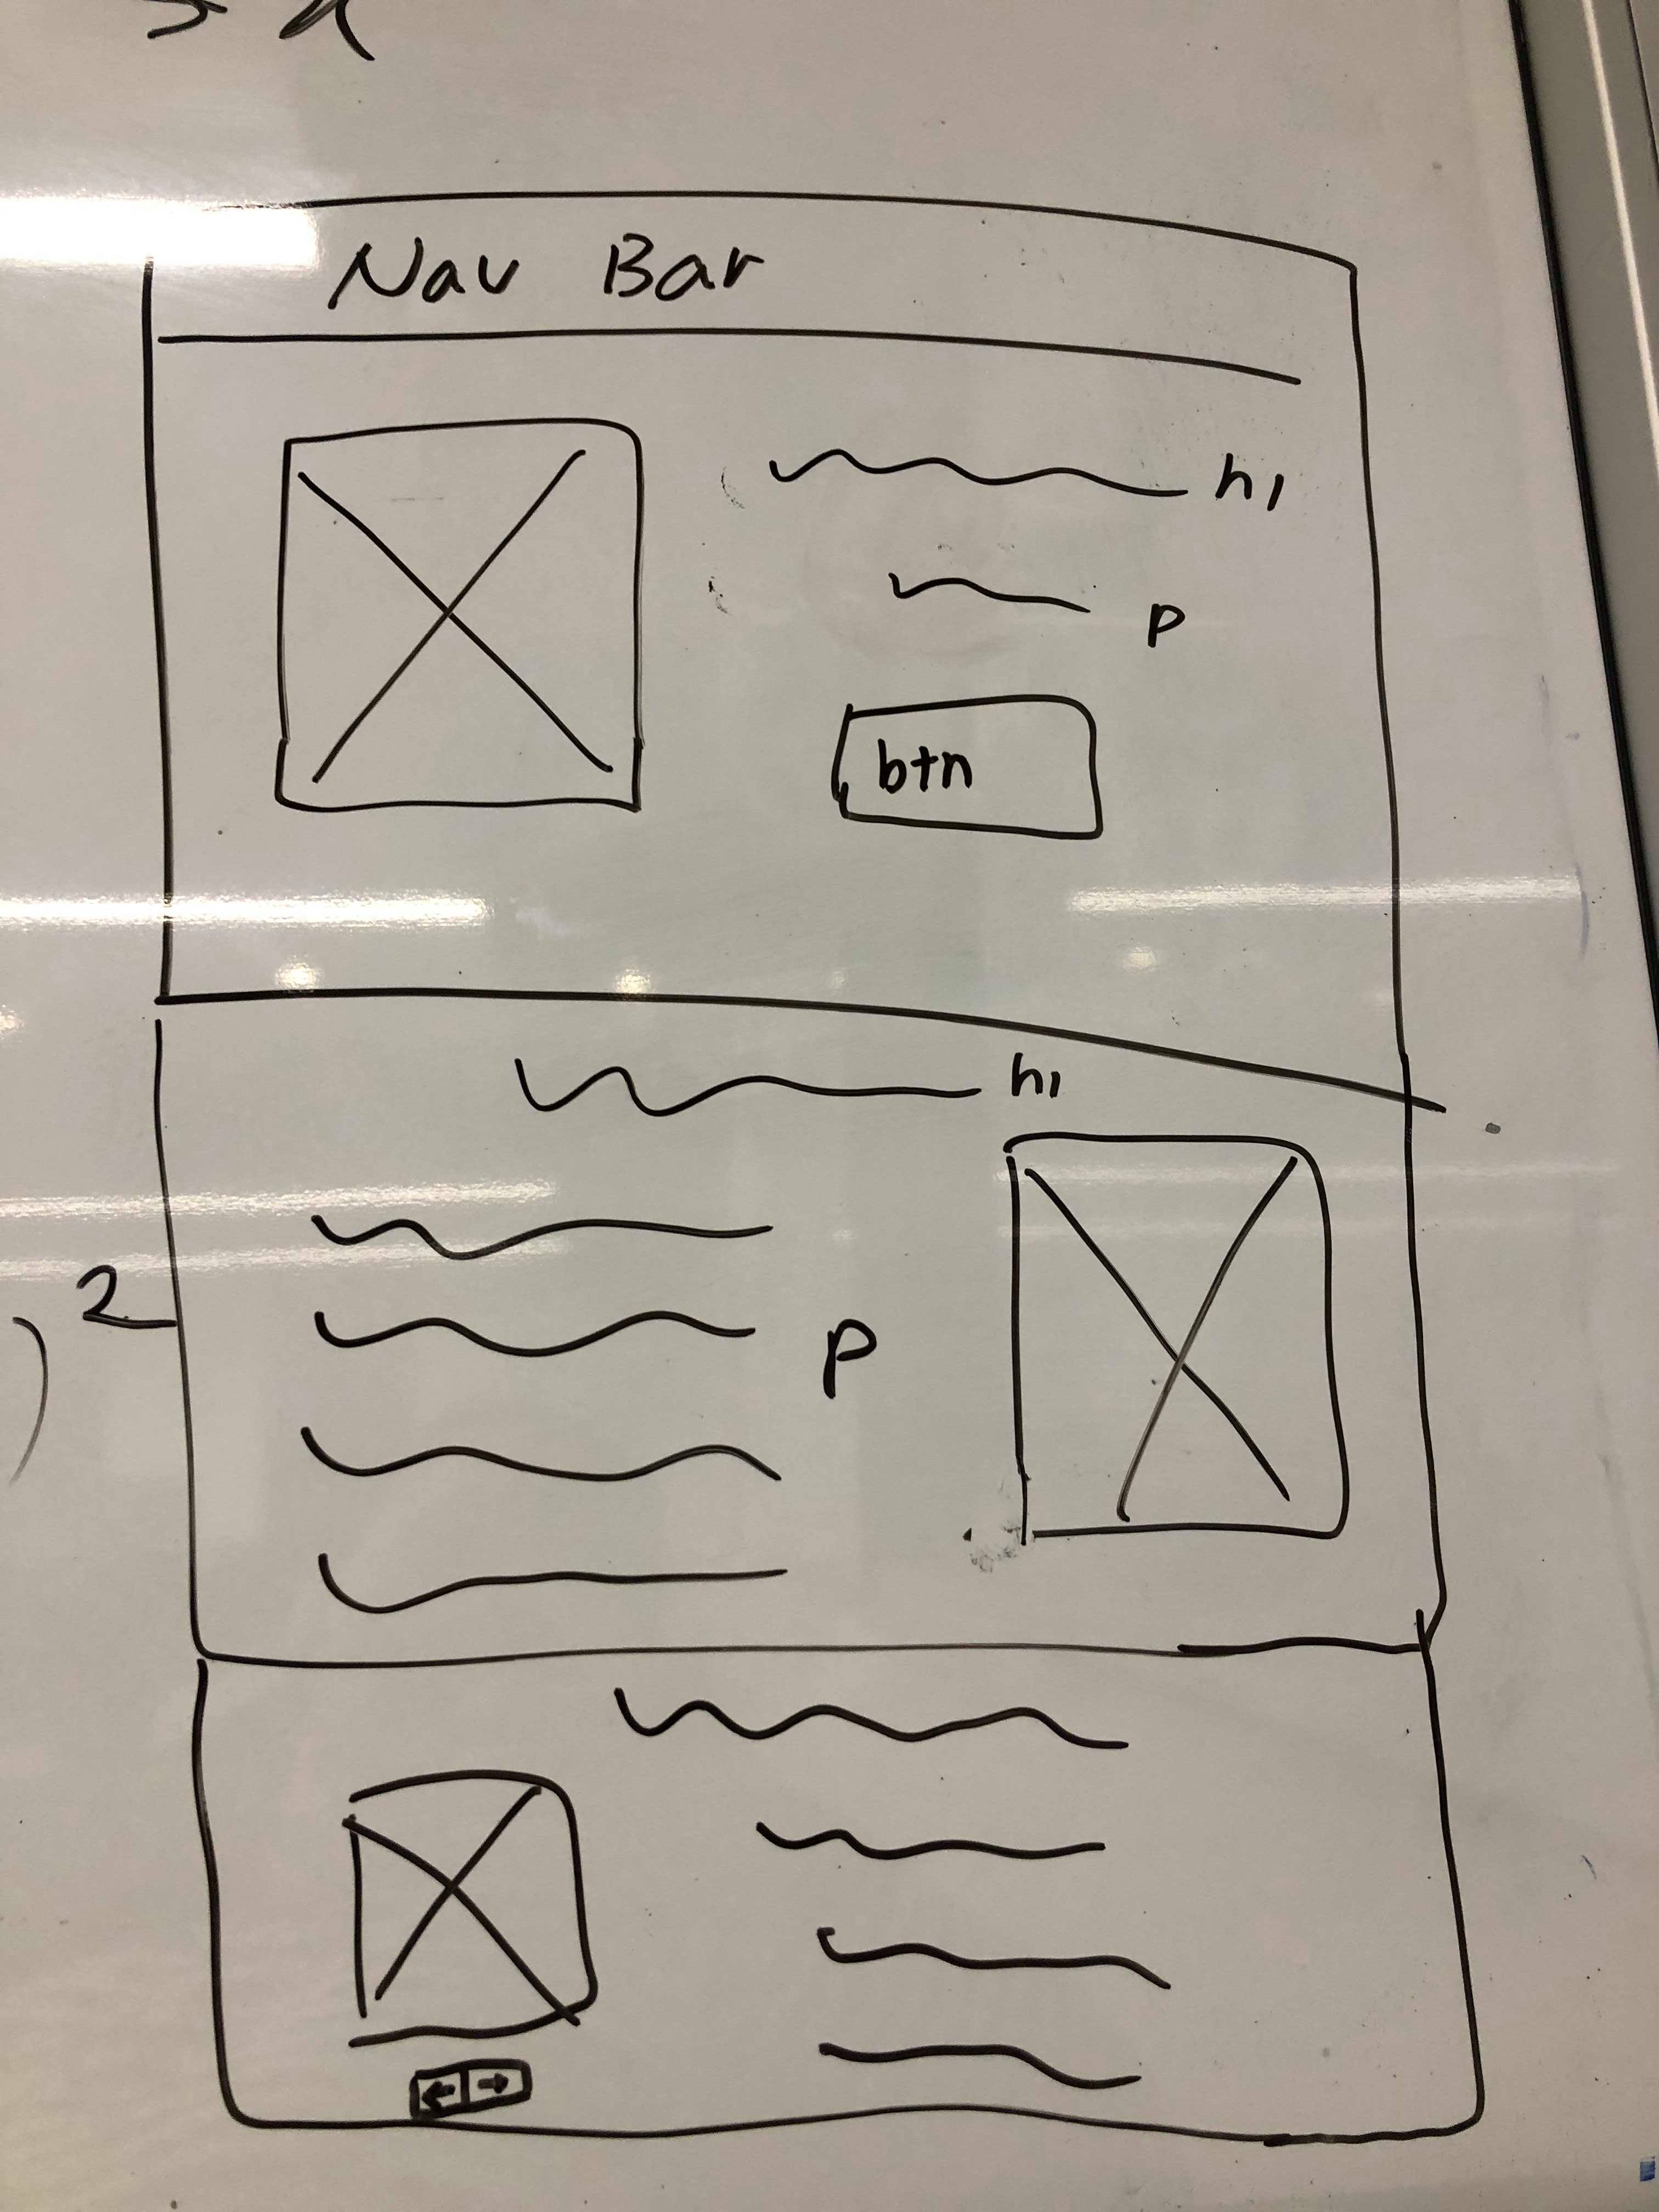 Nav Bar
h1
p
btn
h1
2
p